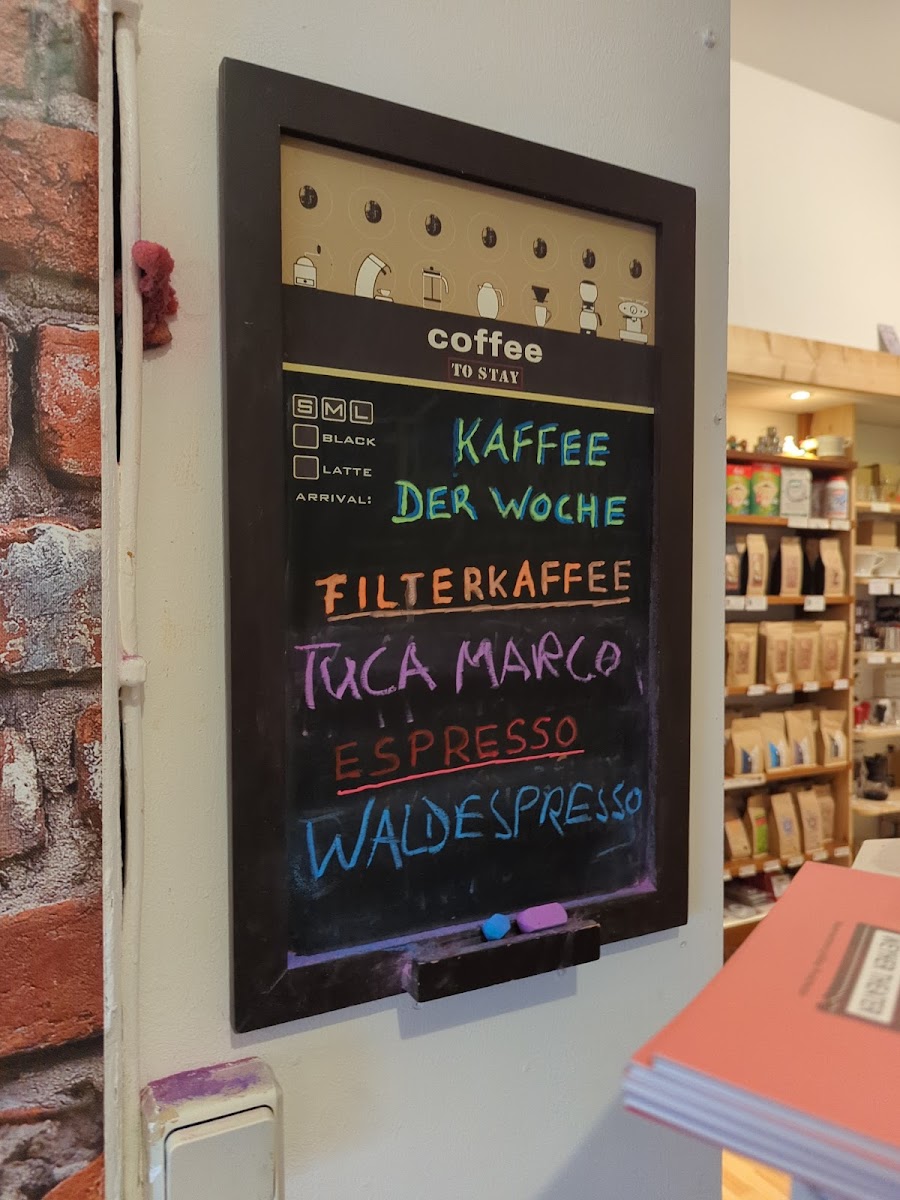 coffee
TO STAY
S M L
BLACK
LATTE
ARRIVAL:
KAFFEE
DER WOCHE
FILTERKAFFEE
TUCA MARCO
ESPRESSO
WALDESPRESSO